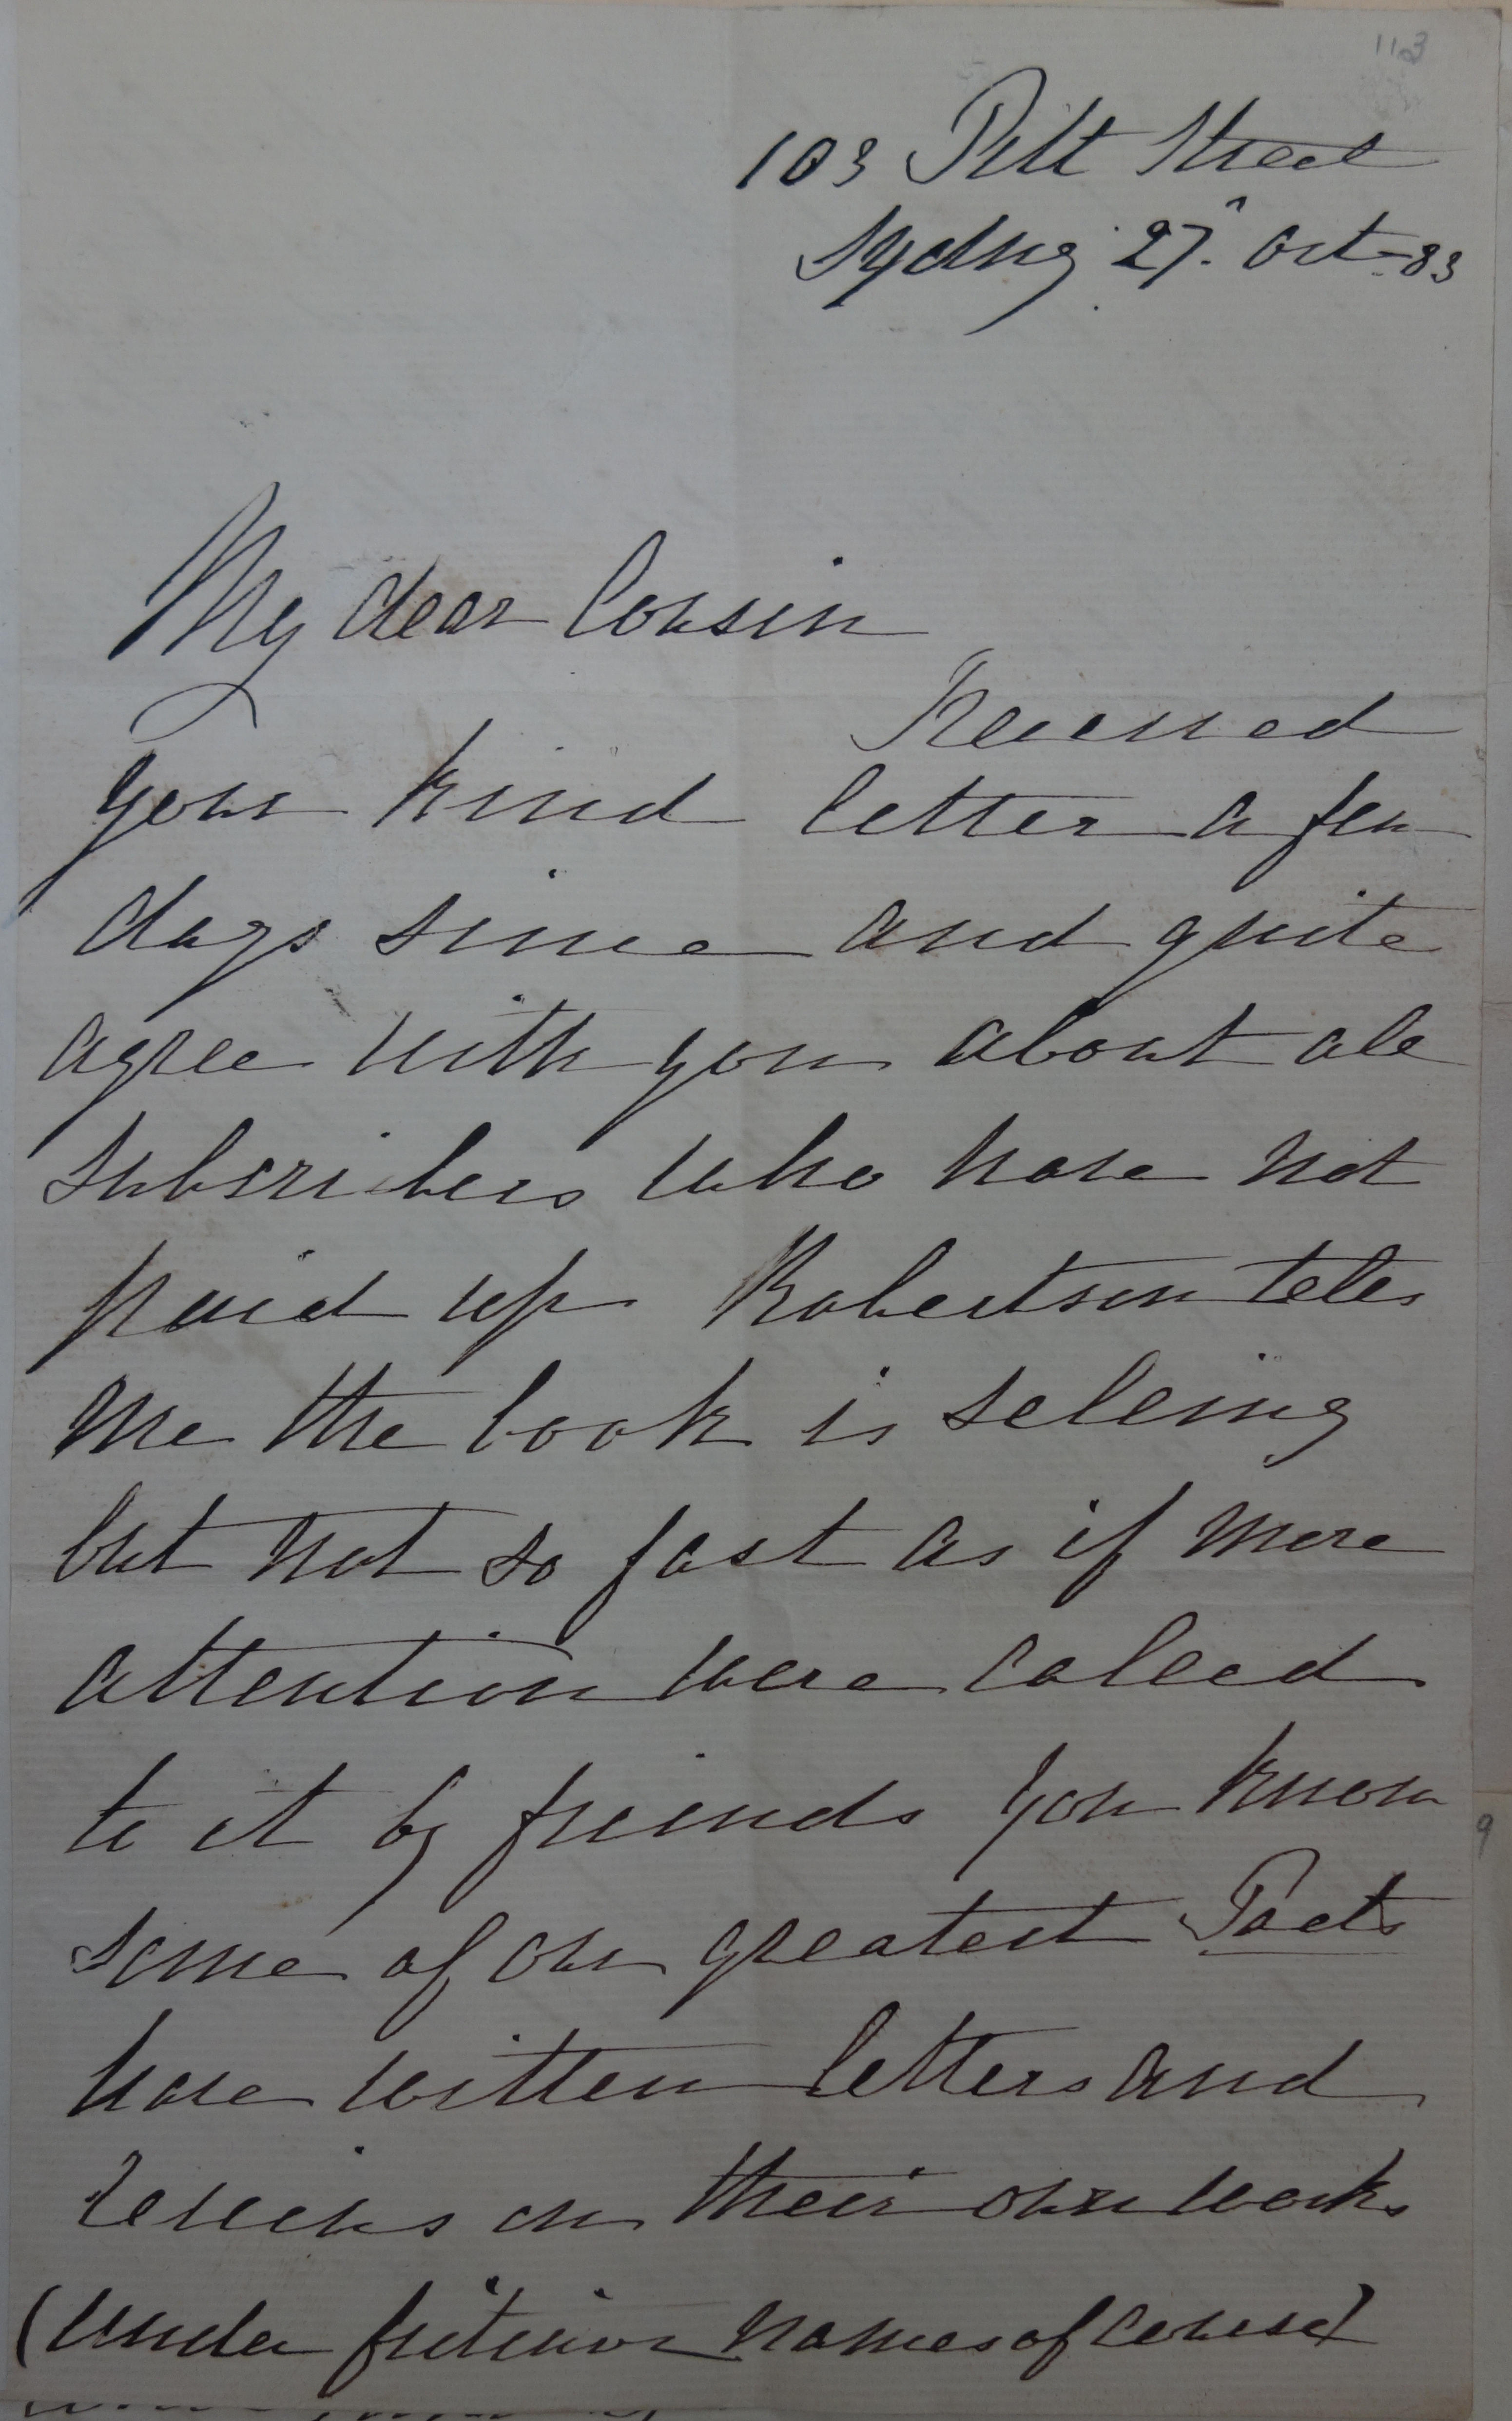 113
103 Pitt Street
Sydney 27. Oct-83
My dear Cousin
Received
your kind letter a few
days since and quite
agree with you about all
subscribers who have not
paid up Robertson tells
me the book is selling
but not so fast as if more
attention were called
to it by friends You know
some of our greatest Poets
have written letters and
reviews on their own works
(under fictitious names of course)